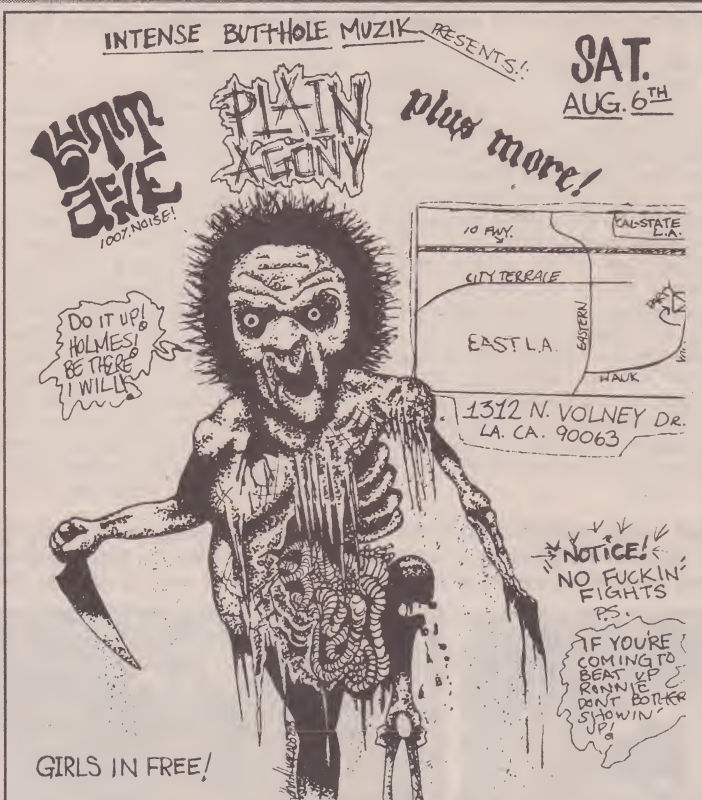 INTENSE BUTTHOLE MUZIK PRESENTS!!
SAT.
AUG. 6TH
BUTT
ACNE
100% NOISE!
PLAIN
AGONY
plus more!
10 FWY.
CAL-STATE
L.A.
CITY TERRACE
EAST L.A.
EASTERN
HAUK
1312 N. VOLNEY DR.
LA. CA. 90063
DO IT UP!
HOLMES!
BE THERE
I WILL!
NOTICE!
NO FUCKIN'
FIGHTS
P.S.
IF YOU'RE
COMING TO
BEAT UP
RONNIE
DONT BOTHER
SHOWIN'
UP!
GIRLS IN FREE!